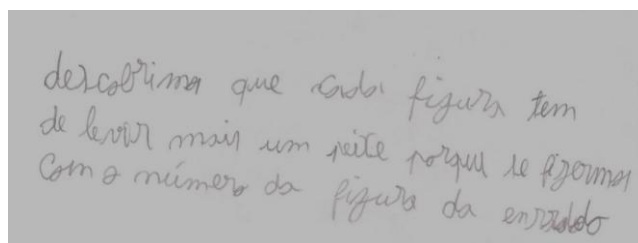 descobrimos que cada figura tem
de levar mais um reite porque se fizermos
com o número da figura da enrrado